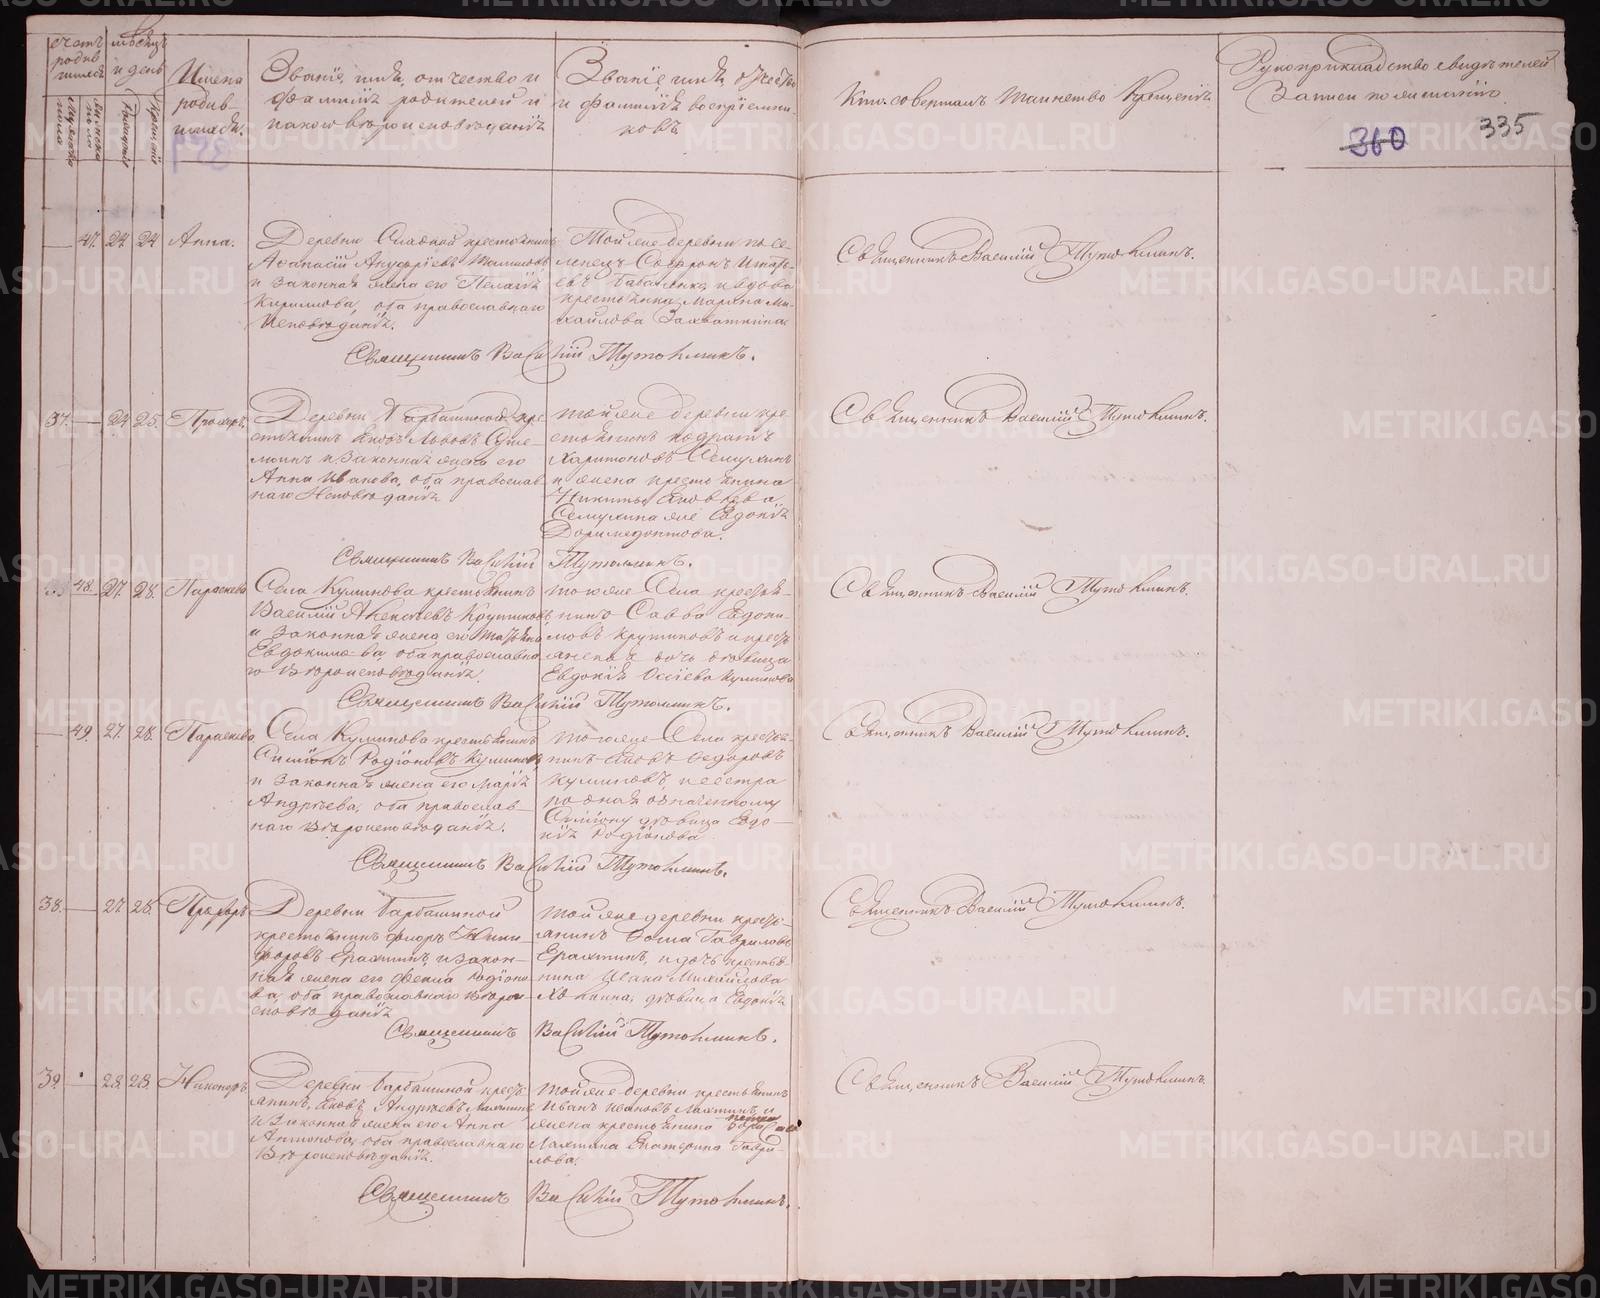 Счетъ родив-шихся
Мѣсяцъ и день
Мужеска пола
Женска пола
Рожденія
Крещенія
Имена
родив-
шихся.
Званіе, имя, отчество и
фамилія родителей и
какого вѣроисповѣданія
Званіе, имя, отчество
и фамилія воспріемни
ковъ
Кто совершалъ таинство Крещенія.
Рукоприкладство свидѣтелей
записи по желанію
360
335
47. 24 24 Анна.
крестьянинъ
и законная жена его Пелагія
Кирилова, оба православнаго
Исповѣданія.
Той же деревни посе-
ленецъ
и вдова
крестьянка Марина Ми-
хайлова
Священникъ Василій Тутолминъ.
Священникъ Василій Тутолминъ.
37. 24 25. Прохоръ.
Деревни
и законная жена его
Анна Иванова, оба православ
наго Исповѣданія
Той же деревни кре-
стьянинъ Кодратъ
Харитоновъ Семухинъ
и жена крестьянина
Никиты Яковлева
Семухина же Евдокія
Доримедонтова.
Священникъ Василій Тутолминъ.
Священникъ Василій Тутолминъ.
48. 27. 28. Параскева
Села Куликова крестьянинъ
Василій Алексѣевъ Крутиковъ
и законная жена его Татьяна
Евдокимо-ва, оба православна
го Вѣроисповѣданія.
Того же Села крестья-
нинъ Савва Евдоки-
мовъ Крутиковъ и кресть
янская дочь дѣвица
Евдокія Осіева Куликова
Священникъ Василій Тутолминъ.
Священникъ Василій Тутолминъ.
49. 27. 28. Параскева
Села Куликова крестьянинъ
Симіонъ Родіоновъ Куликовъ
и законная жена его Марія
Андрѣева, оба православ-
наго Вѣроисповѣданія.
Того же Села крестья-
нинъ Яковъ Федоровъ
Куликовъ, и сестра
родная означенному
Симіону дѣвица Евдо-
кія Родіонова
Священникъ Василій Тутолминъ.
Священникъ Василій Тутолминъ.
38. 27 28. Прохоръ
Деревни Барбашиной
крестьянинъ Флоръ Ники-
форовъ Ерахтинъ, и закон-
ная жена его Фекла Родіоно
ва, оба православнаго Вѣрои-
сповѣданія
Той же деревни кресть-
янинъ Фома Гавриловъ
Ерахтинъ, и дочь крестья-
нина Ивана Михайлова
дѣвица Евдокія
Священникъ Василій Тутолминъ.
Священникъ Василій Тутолминъ.
39. 28 28. Никаноръ
Деревни Барбашиной кресть
янинъ, Яковъ Андрѣевъ Лахтинъ
и Законная жена его Анна
Антонова, оба православнаго
Вѣроисповѣданія.
Той же деревни крестьянинъ
Иванъ Ивановъ Лахтинъ, и
жена крестьянина
Лахтина Екатерина Гаври-
лова.
Священникъ Василій Тутолминъ.
Священникъ Василій Тутолминъ.
METRIKI.GASO-URAL.RU